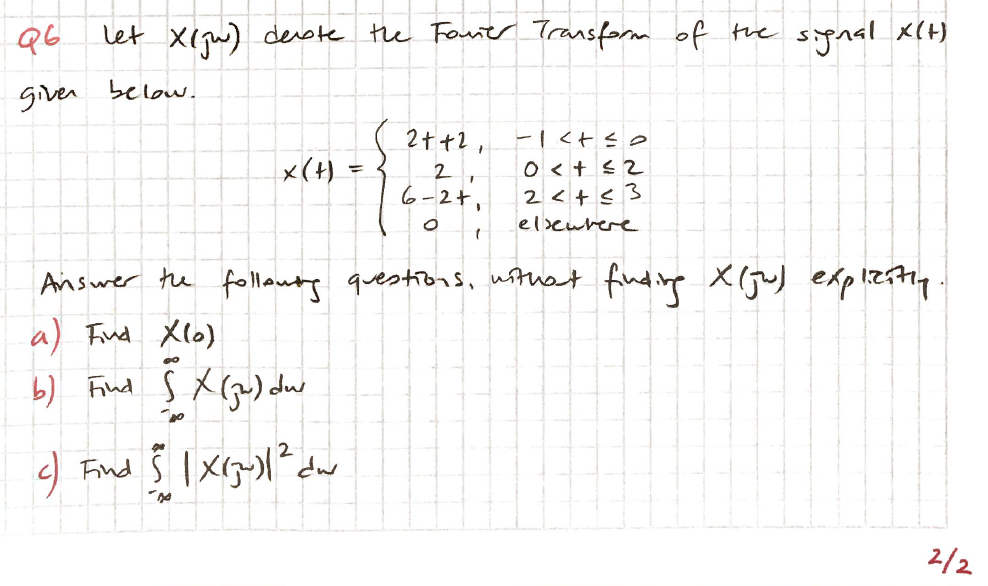 Q6 Let X(jw) denote the Fourier Transform of the signal x(t)
given below.
x(t) = { 2t+2, -1 < t ≤ 0
2, 0 < t ≤ 2
6-2t, 2 < t ≤ 3
0, elsewhere
Answer the following questions, without finding X(jw) explicitly.
a) Find X(0)
b) Find ∫_{-∞}^{∞} X(jw) dw
c) Find ∫_{-∞}^{∞} |X(jw)|² dw
2/2